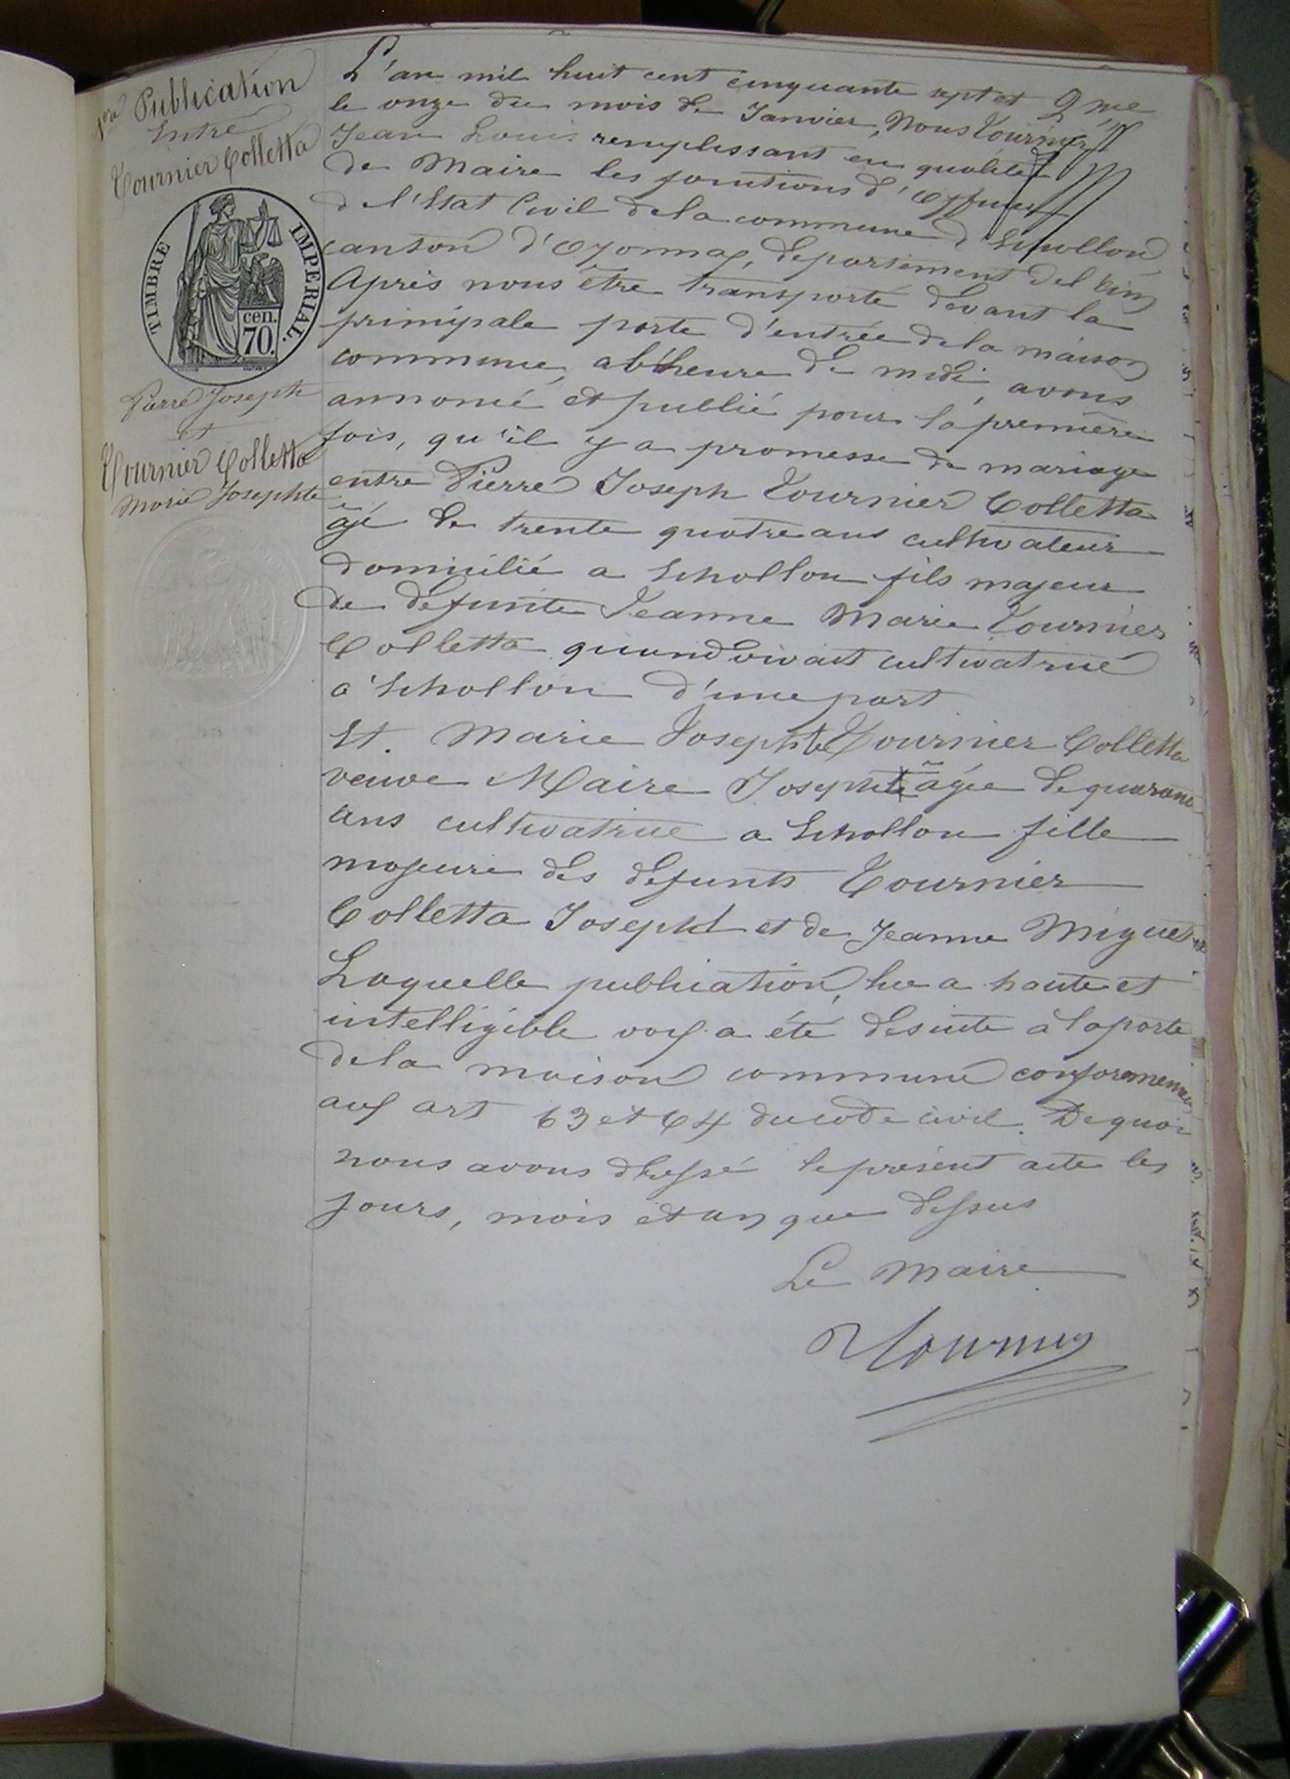 1ère Publication
Entre
Tournier Colletta
TIMBRE IMPERIAL.
cen.
70.
Pierre Joseph
et
Tournier Colletta
Marie Josephte
L'an mil huit cent cinquante sept et
2me
le onze du mois de Janvier, Nous Tournier
Jean Louis remplissant en qualité
de Maire les fonctions d'Officier
de l'Etat Civil de la commune d'Echallon
canton d'Oyonnax, departement del'Ain
Après nous être transporté devant la
principale porte d'entrée de la maison
commune, a l'heure de midi, avons
annoncé et publié pour la première
fois, qu'il y a promesse de mariage
entre Pierre Joseph Tournier Colletta
âgé de trente quatre ans cultivateur
domicilié a Echallon fils majeur
de defunte Jeanne Marie Tournier
Colletta quand vivait cultivatrice
a Echallon d'une part
Et. Marie Josephte Tournier Colletta
veuve Maire Joseph âgée de quarante
ans cultivatrice a Echallon fille
majeure des defunts Tournier
Colletta Joseph et de Jeanne Miguet
Laquelle publication, lue a haute et
intelligible voix a été desuite à la porte
de la maison commune conforememt
aux art 63 et 64 du code civil. De quoi
nous avons dressé le présent acte les
jours, mois et an que dessus
Le Maire
Tournier